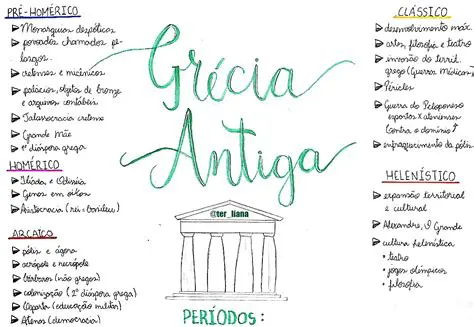 PRÉ-HOMÉRICO
Monarquias despóticas
povoados chamados pe-
lasgos.
cretenses e micênicos
palácios, objetos de bronze
e arquivos contábeis
Talassocracia cretense
Grande Mãe
1ª diáspora grega
HOMÉRICO
Ilíada e Odisseia
Genos em oikos
Aristocracia (rei = basileu)
ARCAICO
pólis e ágora
acrópole e necrópole
bárbaros (não gregos)
colonização (2ª diáspora grega)
Esparta (educação militar)
Atenas (democracia)
Grécia
Antiga
@ter_liana
PERÍODOS:
CLÁSSICO
desenvolvimento máx.
artes, filosofia e teatro
invasão do territ.
grego (Guerras Médicas)
Péricles
Guerra do Peloponeso
espartas x atenienses
Contra o domínio ↑
enfraquecimento da pólis
HELENÍSTICO
expansão territorial
e cultural
Alexandre, O Grande
cultura helenística
• teatro
• jogos olímpicos
• filosofia